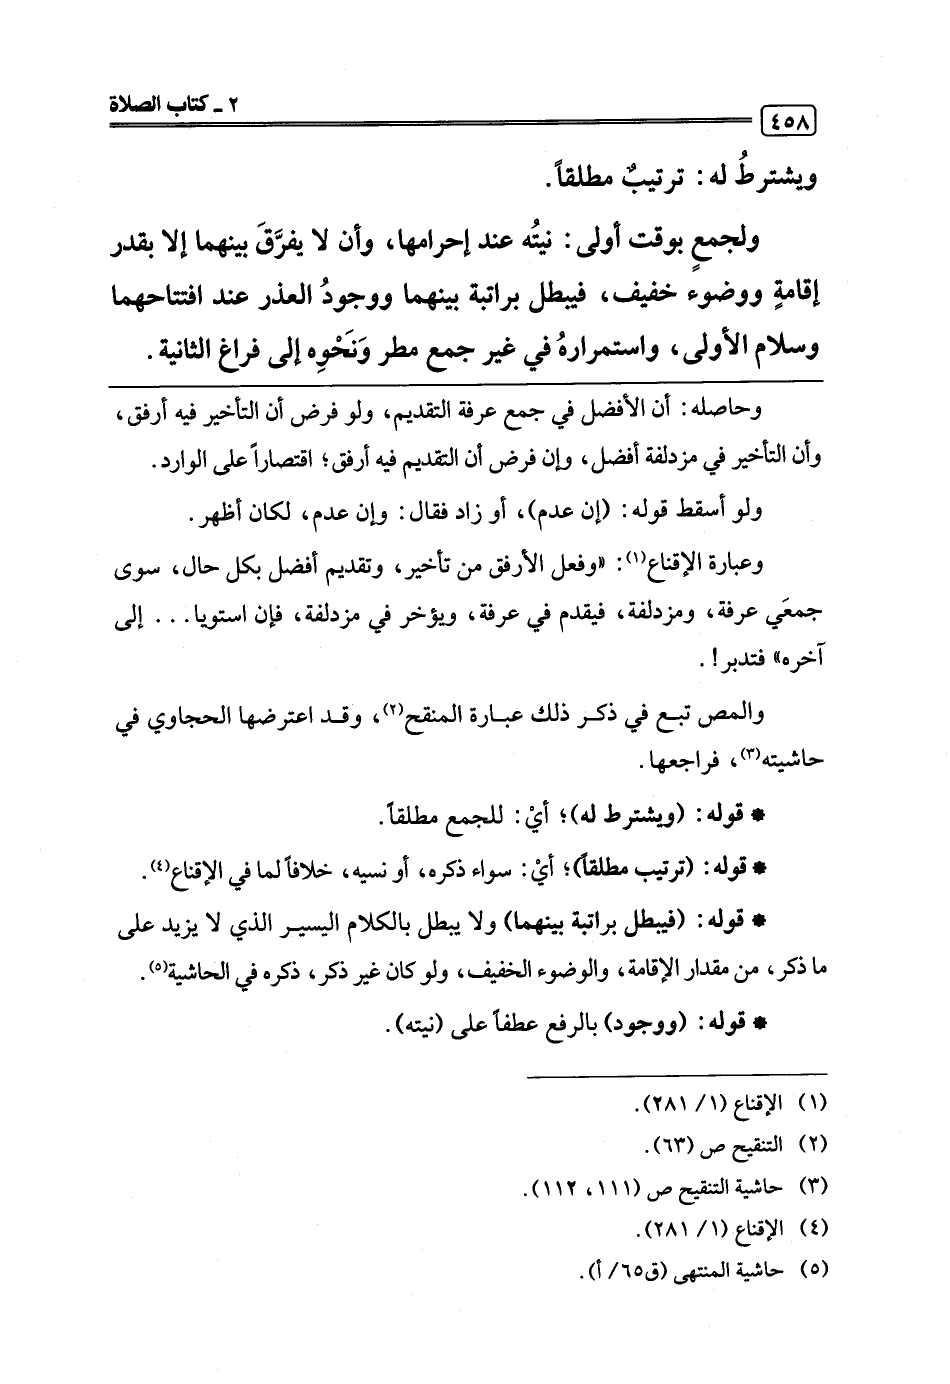 ٢ ـ كتاب الصلاة
٤٥٨
ويشترطُ له: ترتيبٌ مطلقاً.
ولجمعٍ بوقت أولى: نيتُه عند إحرامها، وأن لا يفرَّقَ بينهما إلا بقدر
إقامةٍ ووضوء خفيف، فيبطل براتبة بينهما ووجودُ العذر عند افتتاحهما
وسلام الأولى، واستمرارهُ في غير جمع مطر وَنَحْوِه إلى فراغ الثانية.
وحاصله: أن الأفضل في جمع عرفة التقديم، ولو فرض أن التأخير فيه أرفق،
وأن التأخير في مزدلفة أفضل، وإن فرض أن التقديم فيه أرفق؛ اقتصاراً على الوارد.
ولو أسقط قوله: (إن عدم)، أو زاد فقال: وإن عدم، لكان أظهر.
وعبارة الإقناع(١): «وفعل الأرفق من تأخير، وتقديم أفضل بكل حال، سوى
جمعَي عرفة، ومزدلفة، فيقدم في عرفة، ويؤخر في مزدلفة، فإن استويا... إلى
آخره» فتدبر!.
والمص تبع في ذكر ذلك عبارة المنقح(٢)، وقد اعترضها الحجاوي في
حاشيته(٣)، فراجعها.
* قوله: (ويشترط له)؛ أيْ: للجمع مطلقاً.
* قوله: (ترتيب مطلقاً)؛ أيْ: سواء ذكره، أو نسيه، خلافاً لما في الإقناع(٤).
* قوله: (فيبطل براتبة بينهما) ولا يبطل بالكلام اليسير الذي لا يزيد على
ما ذكر، من مقدار الإقامة، والوضوء الخفيف، ولو كان غير ذكر، ذكره في الحاشية(٥).
* قوله: (ووجود) بالرفع عطفاً على (نيته).
(١) الإقناع (١/ ٢٨١).
(٢) التنقيح ص (٦٣).
(٣) حاشية التنقيح ص (١١١، ١١٢).
(٤) الإقناع (١/ ٢٨١).
(٥) حاشية المنتهى (ق٦٥/ أ).